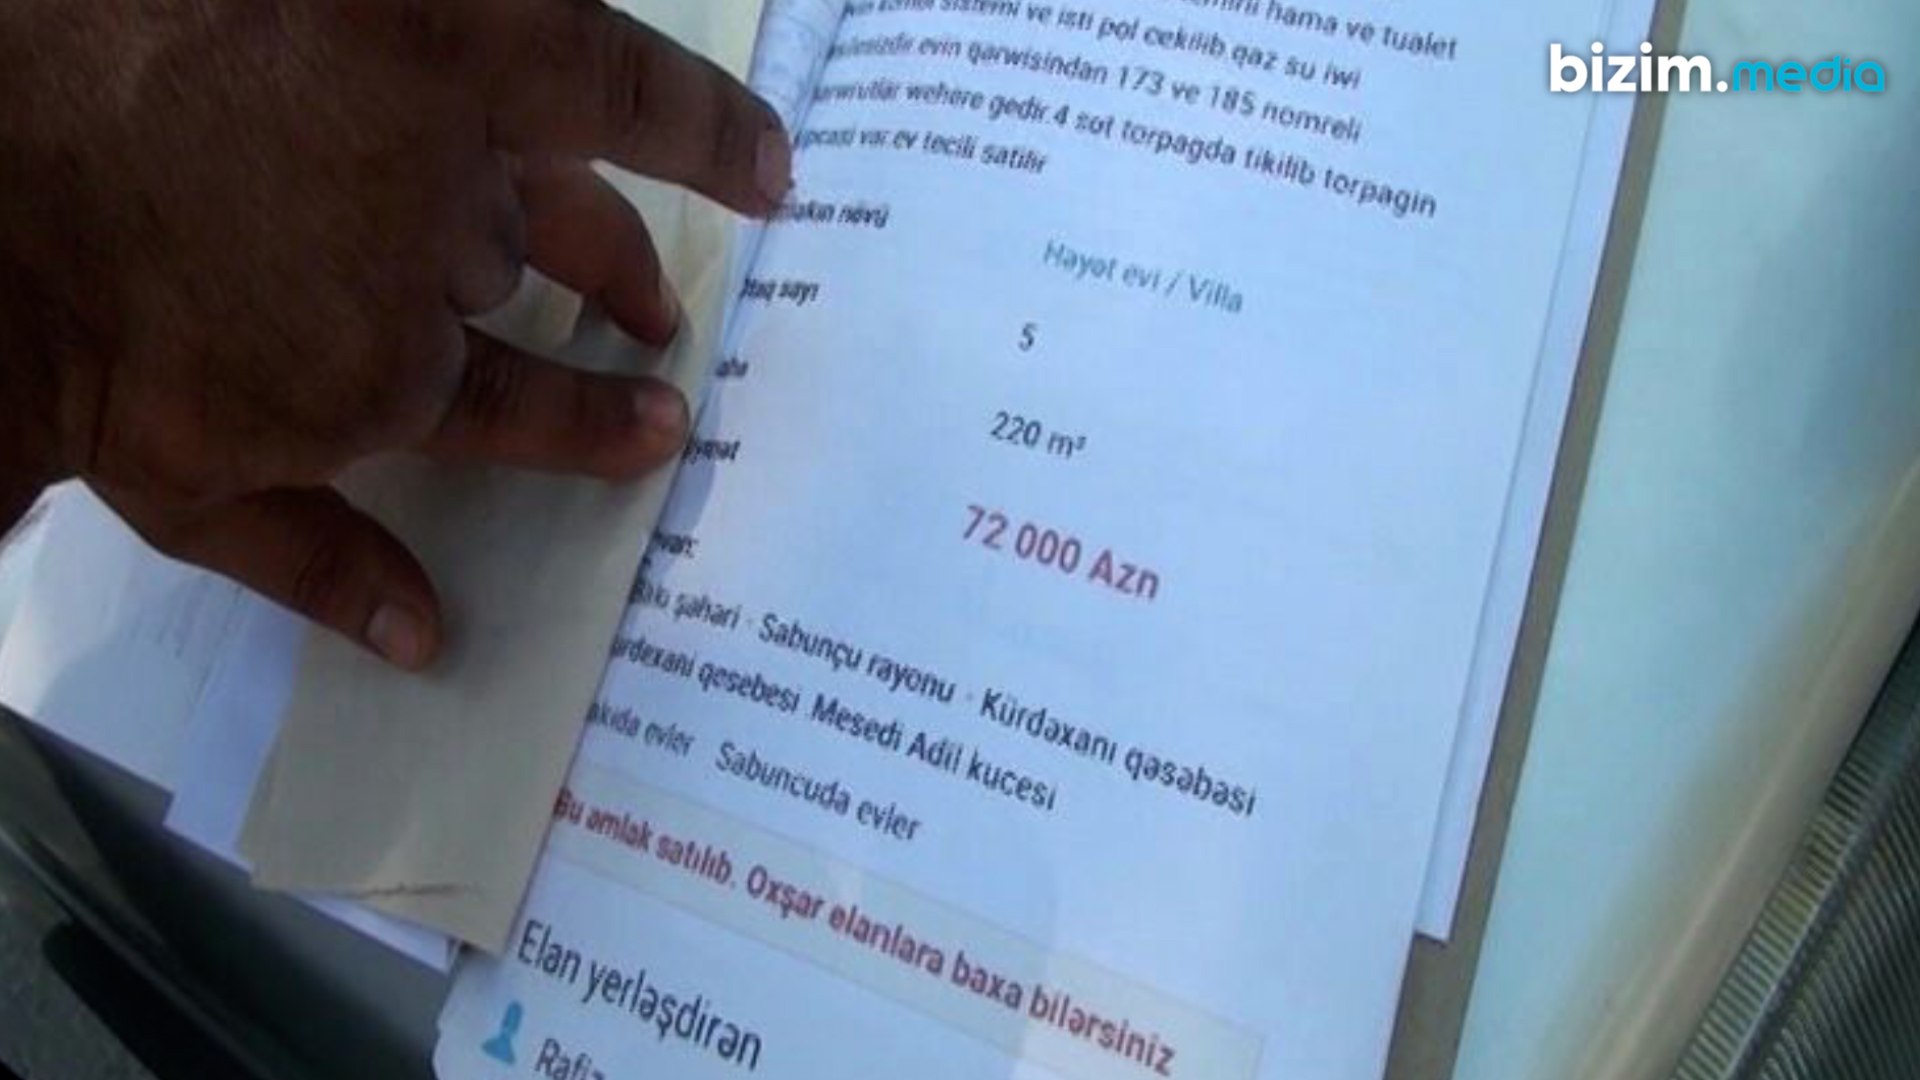 hama ve tualet
sistemi ve isti pol cekilib,qaz su iwi
evin qarwisindan 173 ve 185 nomreli
wehere gedir.4 sot torpagda tikilib torpagin
var.ev tecili satilir
növü
Həyət evi / Villa
sayı
5
220 m²
72 000 Azn
şəhəri · Sabunçu rayonu · Kürdəxanı qəsəbəsi
qesebesi .Mesedi Adil kucesi
evler Sabuncuda evler
Bu əmlak satılıb. Oxşar elanlara baxa bilərsiniz
Elan yerləşdirən
bizim.media